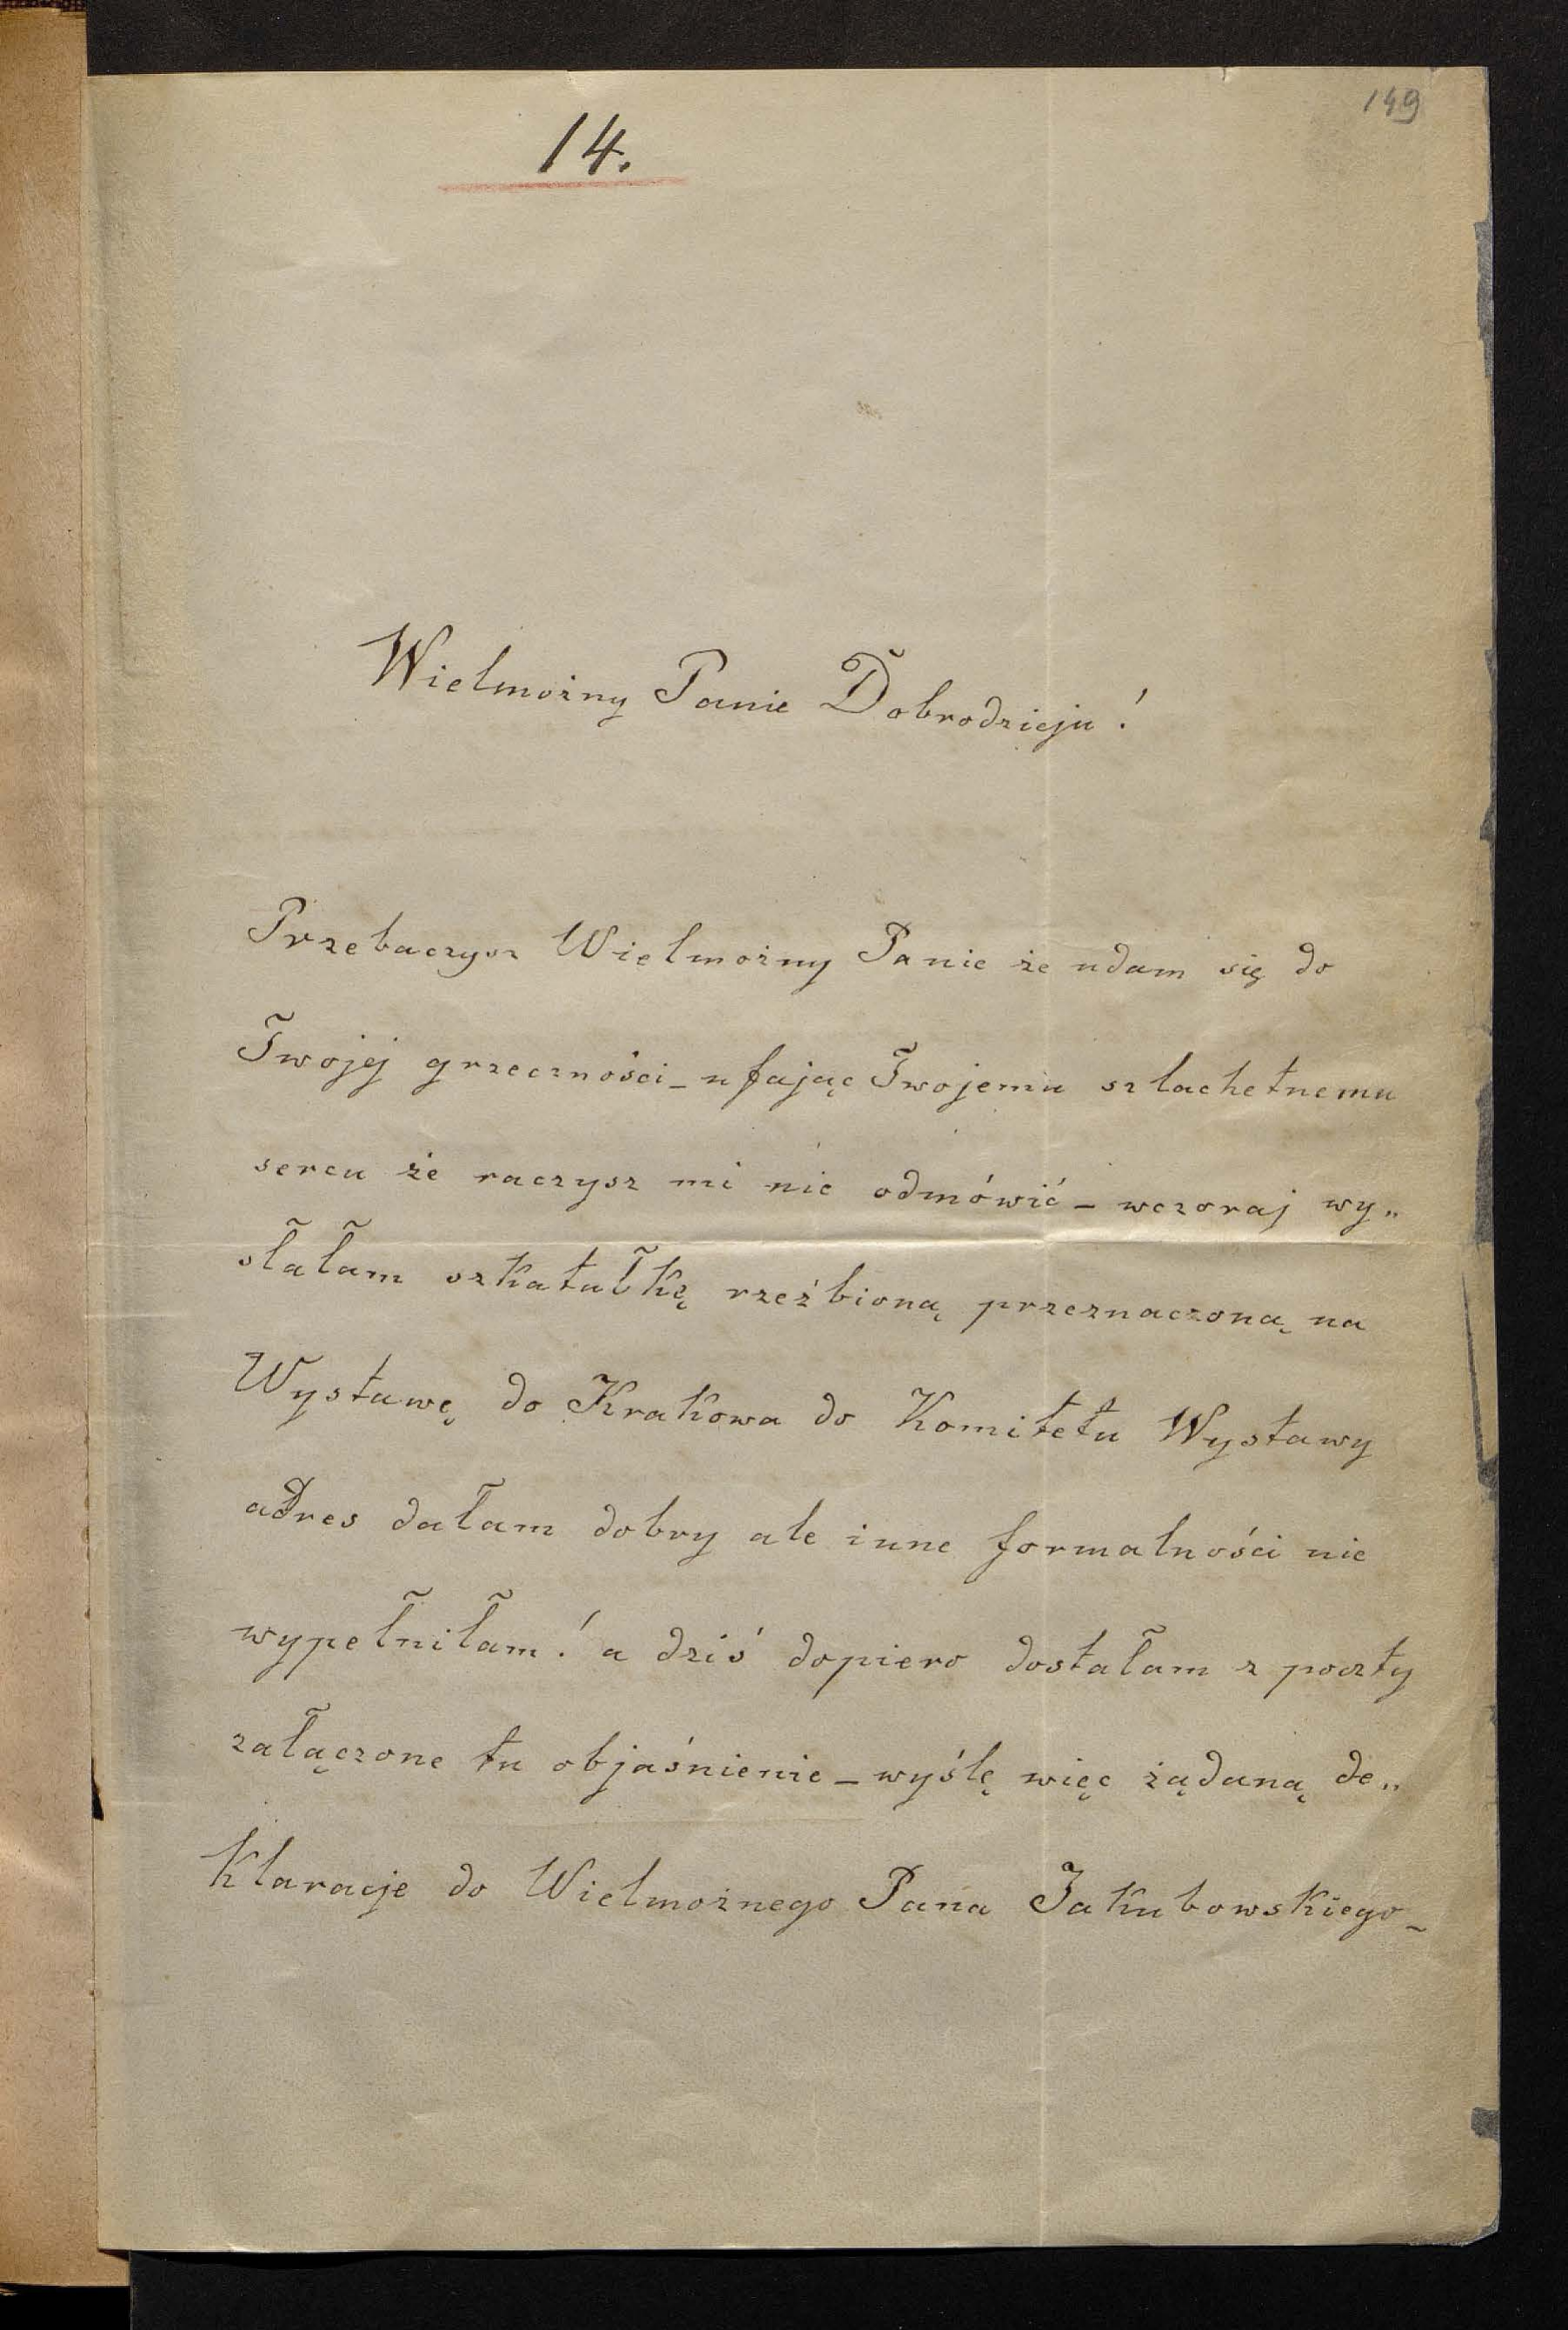 149
14.
Wielmożny Panie Dobrodzieju!
Przebaczysz Wielmożny Panie że udam się do
Twojej grzeczności – ufając Twojemu szlachetnemu
sercu że raczysz mi nie odmówić – wczoraj wy„
słałam szkatułkę rzeźbioną przeznaczoną na
Wystawę do Krakowa do Komitetu Wystawy
adres dałam dobry ale inne formalności nie
wypełniłam! a dziś dopiero dostałam z poczty
załączone tu objaśnienie – wyślę więc żądaną de„
klaracje do Wielmożnego Pana Jakubowskiego –